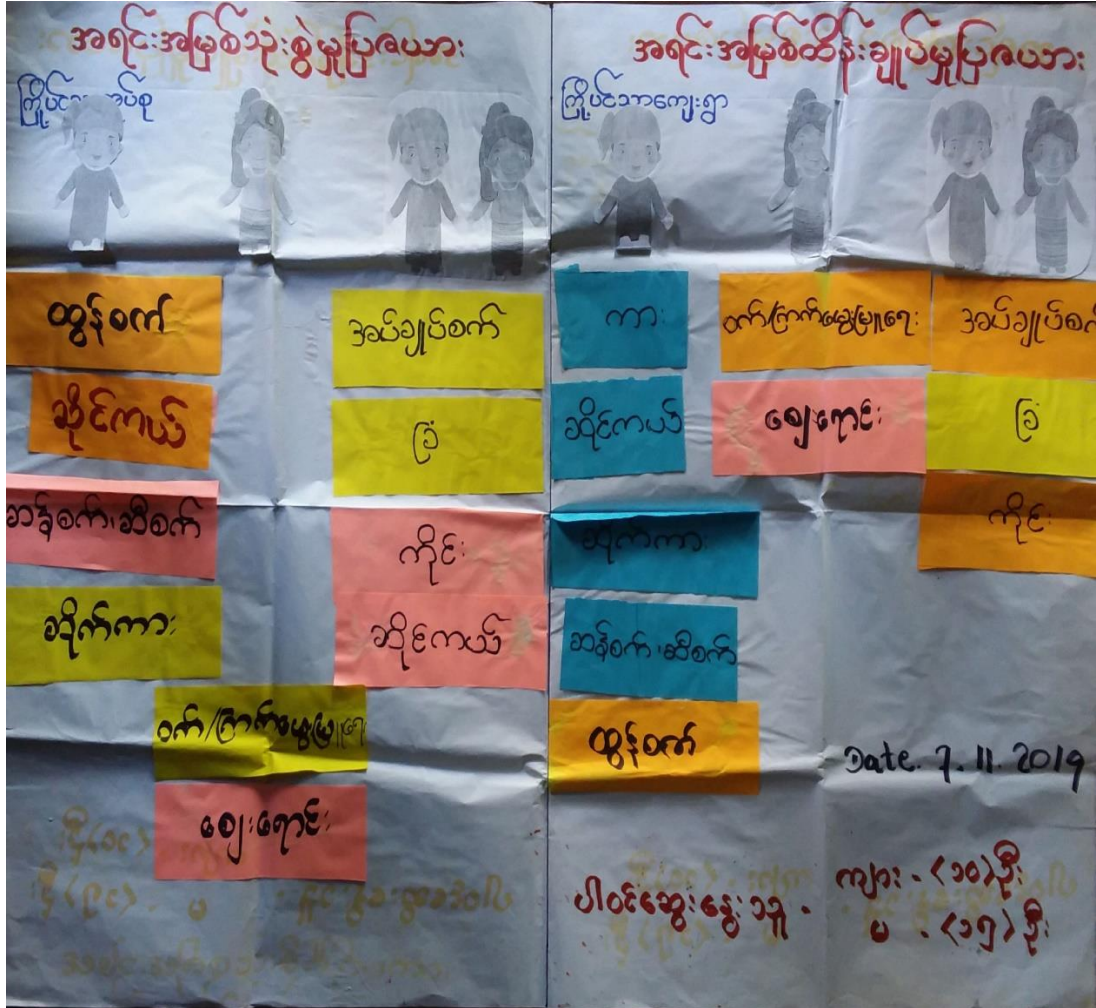 အရင်းအမြစ်သုံးစွဲမှုပြဇယား
ထွန်စက်
ဆိုင်ကယ်
ဆန်စက်၊ဆီစက်
ဆိုက်ကား
အပ်ချုပ်စက်
ခြံ
ကိုင်း
ဆိုင်ကယ်
ဝက်/ကြက်မွေးမြူရေး
ဈေးရောင်း
အရင်းအမြစ်ထိန်းချုပ်မှုပြဇယား
ကြို့ပင်သာကျေးရွာ
ကား
ဆိုင်ကယ်
ဆိုက်ကား
ဆန်စက်၊ဆီစက်
ထွန်စက်
ဝက်/ကြက်မွေးမြူရေး
ဈေးရောင်း
အပ်ချုပ်စက်
ခြံ
ကိုင်း
Date. 7.11.2019
ပါဝင်ဆွေးနွေးသူ - ကျား - <၁၀>ဦး
မ - <၁၅>ဦး